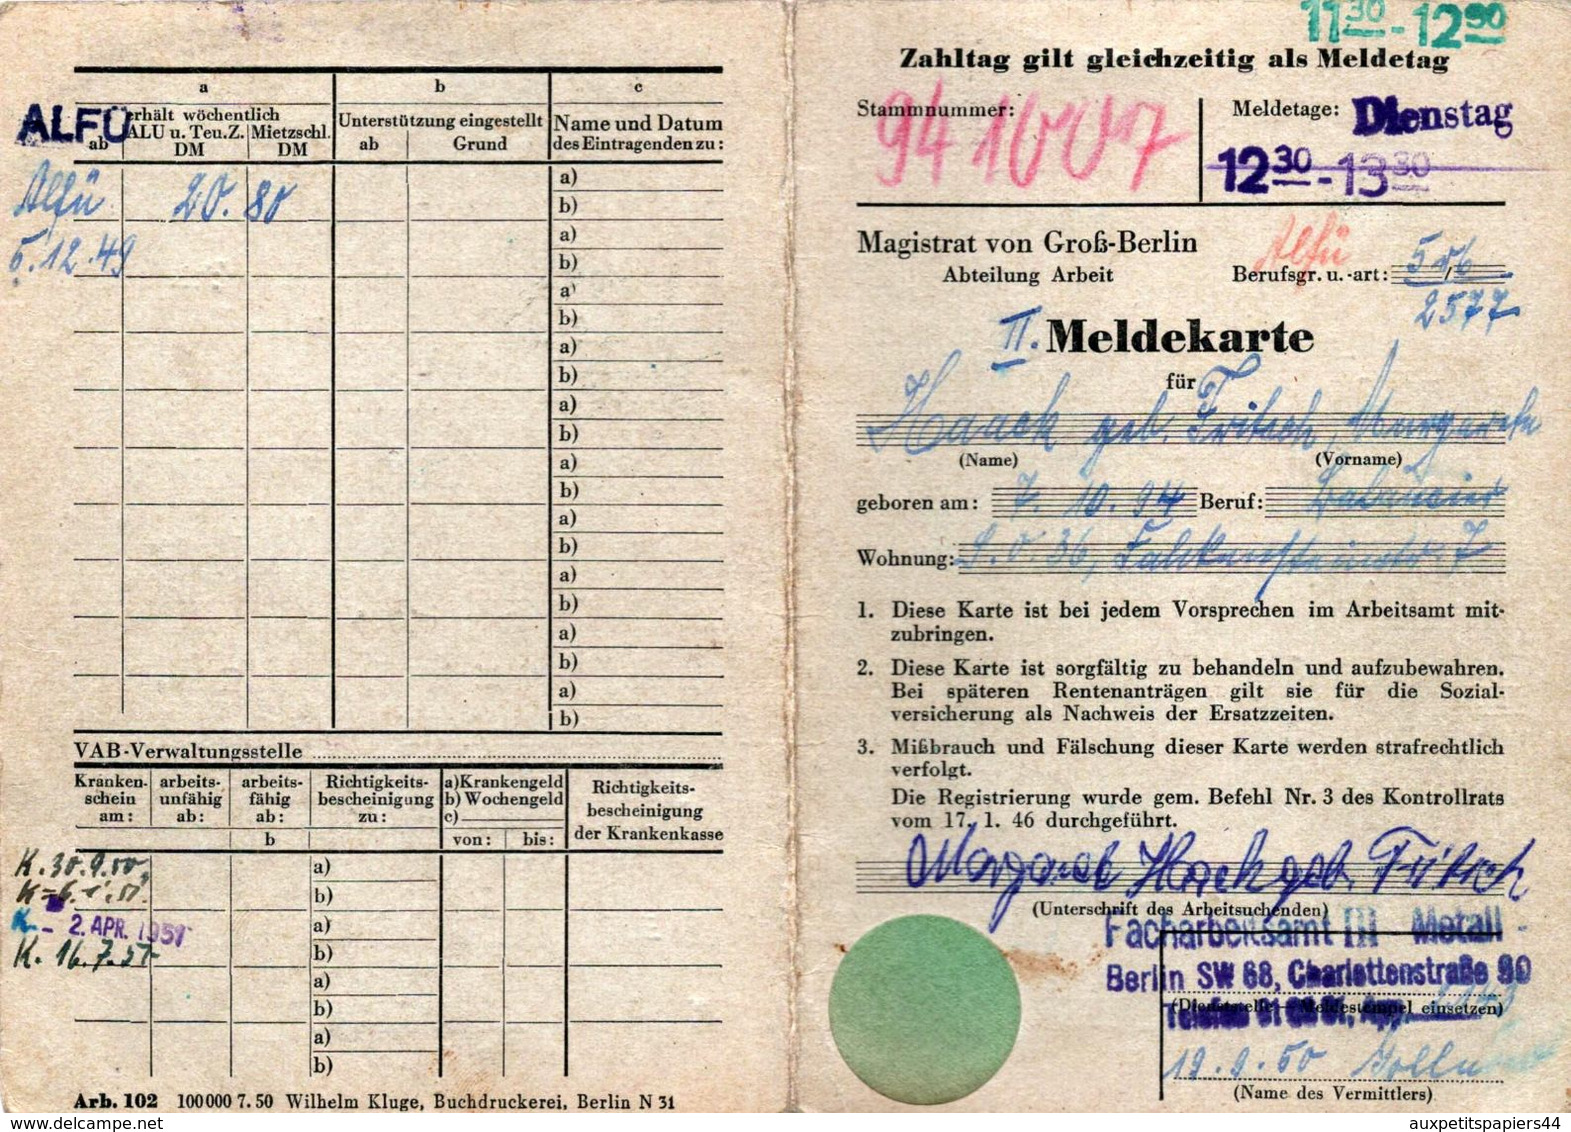 a
b
c
ALFÜ
erhält wöchentlich
ab
ALU u. Teu.Z.
DM
Mietzschl.
DM
Unterstützung eingestellt
ab
Grund
Name und Datum
des Eintragenden zu:
Alfü 20. 80
5.12.49
a)
b)
a)
b)
a)
b)
a)
b)
a)
b)
a)
b)
a)
b)
a)
b)
a)
b)
a)
b)
VAB-Verwaltungsstelle
Kranken-
schein
am:
arbeits-
unfähig
ab:
arbeits-
fähig
ab:
Richtigkeits-
bescheinigung
zu:
a) Krankengeld
b) Wochengeld
c)
Richtigkeits-
bescheinigung
der Krankenkasse
b
von:
bis:
K. 30.9.50,
a)
b)
K. - 2. APR. 1951
a)
b)
K. 16.7.51
a)
b)
a)
b)
Arb. 102 100000 7.50 Wilhelm Kluge, Buchdruckerei, Berlin N 31
11 30 - 12
Zahltag gilt gleichzeitig als Meldetag
Stammnummer:
941007
Meldetage: Dienstag
12 30 - 13 30
Magistrat von Groß-Berlin
Abteilung Arbeit
Alfü
Berufsgr. u. -art:
2577
II. Meldekarte
für
Haack geb. Fritsch, Margarete
(Name)
(Vorname)
geboren am: 7. 10. 94 Beruf:
Wohnung: S.O. 36, Falckensteinstr. 7
1. Diese Karte ist bei jedem Vorsprechen im Arbeitsamt mit-
zubringen.
2. Diese Karte ist sorgfältig zu behandeln und aufzubewahren.
Bei späteren Rentenanträgen gilt sie für die Sozial-
versicherung als Nachweis der Ersatzzeiten.
3. Mißbrauch und Fälschung dieser Karte werden strafrechtlich
verfolgt.
Die Registrierung wurde gem. Befehl Nr. 3 des Kontrollrats
vom 17. 1. 46 durchgeführt.
Margarete Haack geb. Fritsch
(Unterschrift des Arbeitsuchenden)
Facharbeitsamt III Metall
Berlin SW 68, Charlottenstraße 90
(Dienststelle - Meldestempel einsetzen)
Telefon
19.9.50
(Name des Vermittlers)
www.delcampe.net
auxpetitspapiers44